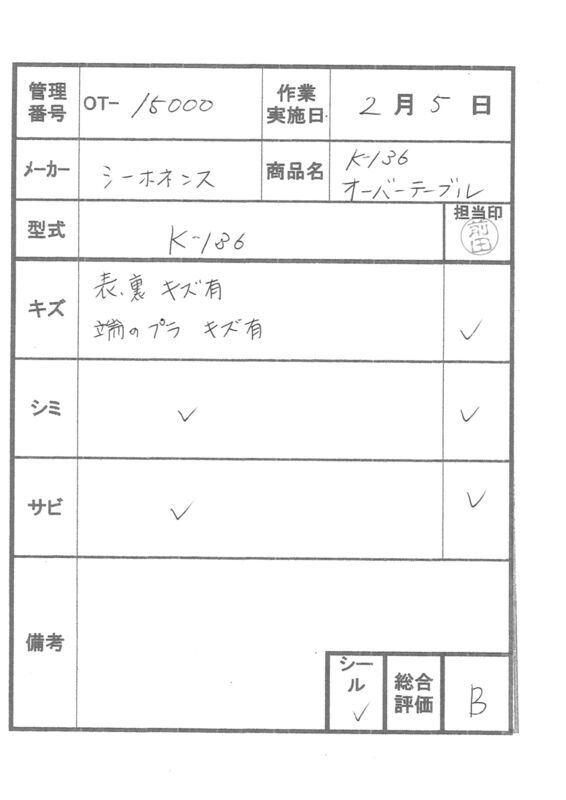 管理番号 OT- 15000 作業実施日 2月5日
メーカー シーホネンス 商品名 K-136 オーバーテーブル
型式 K-136 担当印 前田
キズ 表、裏 キズ有
端のプラ キズ有 ✓
シミ ✓ ✓
サビ ✓ ✓
備考
シール ✓ 総合評価 B